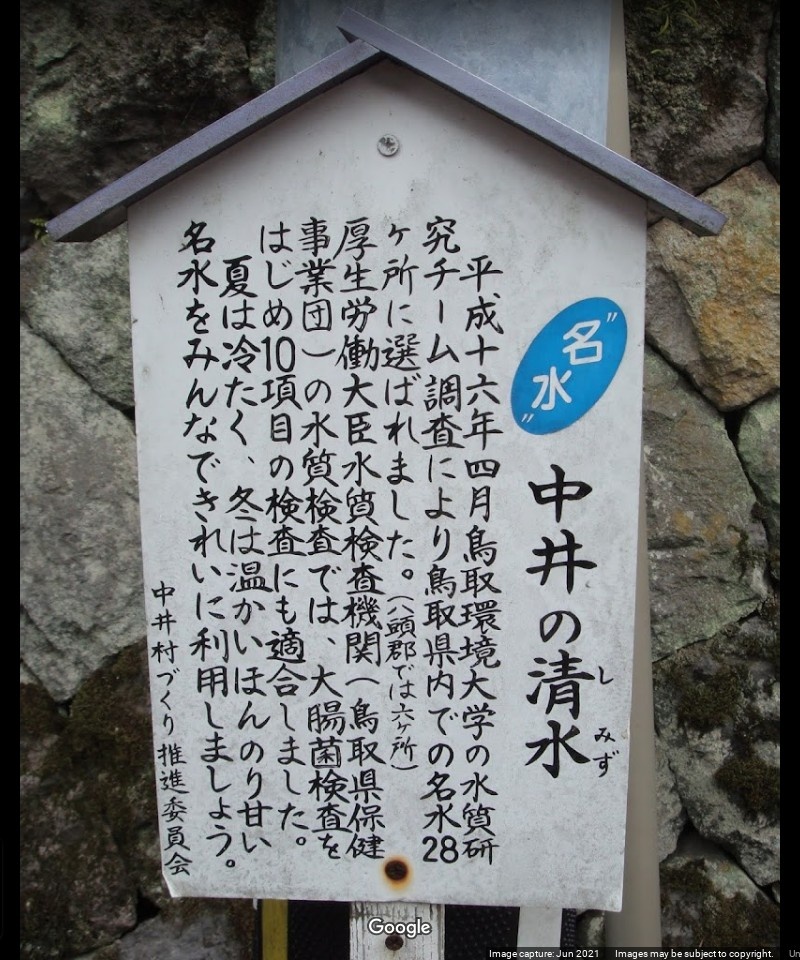 〝名水〟
中井の清水
しみず
平成十六年四月鳥取環境大学の水質研
究チーム調査により鳥取県内での名水28
ヶ所に選ばれました。(八頭郡では六ヶ所)
厚生労働大臣水質検査機関(鳥取県保健
事業団)の水質検査では、大腸菌検査を
はじめ10項目の検査にも適合しました。
夏は冷たく、冬は温かいほんのり甘い
名水をみんなできれいに利用しましょう。
中井村づくり推進委員会
Google
Image capture: Jun 2021 Images may be subject to copyright. Un